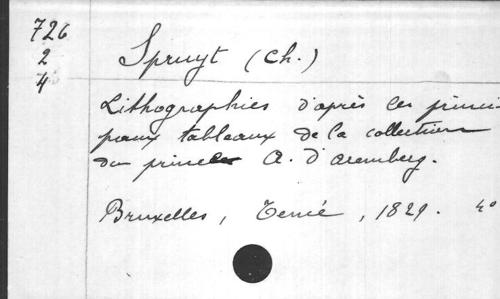 726
2
4
Spruyt (Ch.)
Lithographies d'après les princi-
paux tableaux de la collection
du prince A. d'Aremberg.
Bruxelles, , 1829. 4°